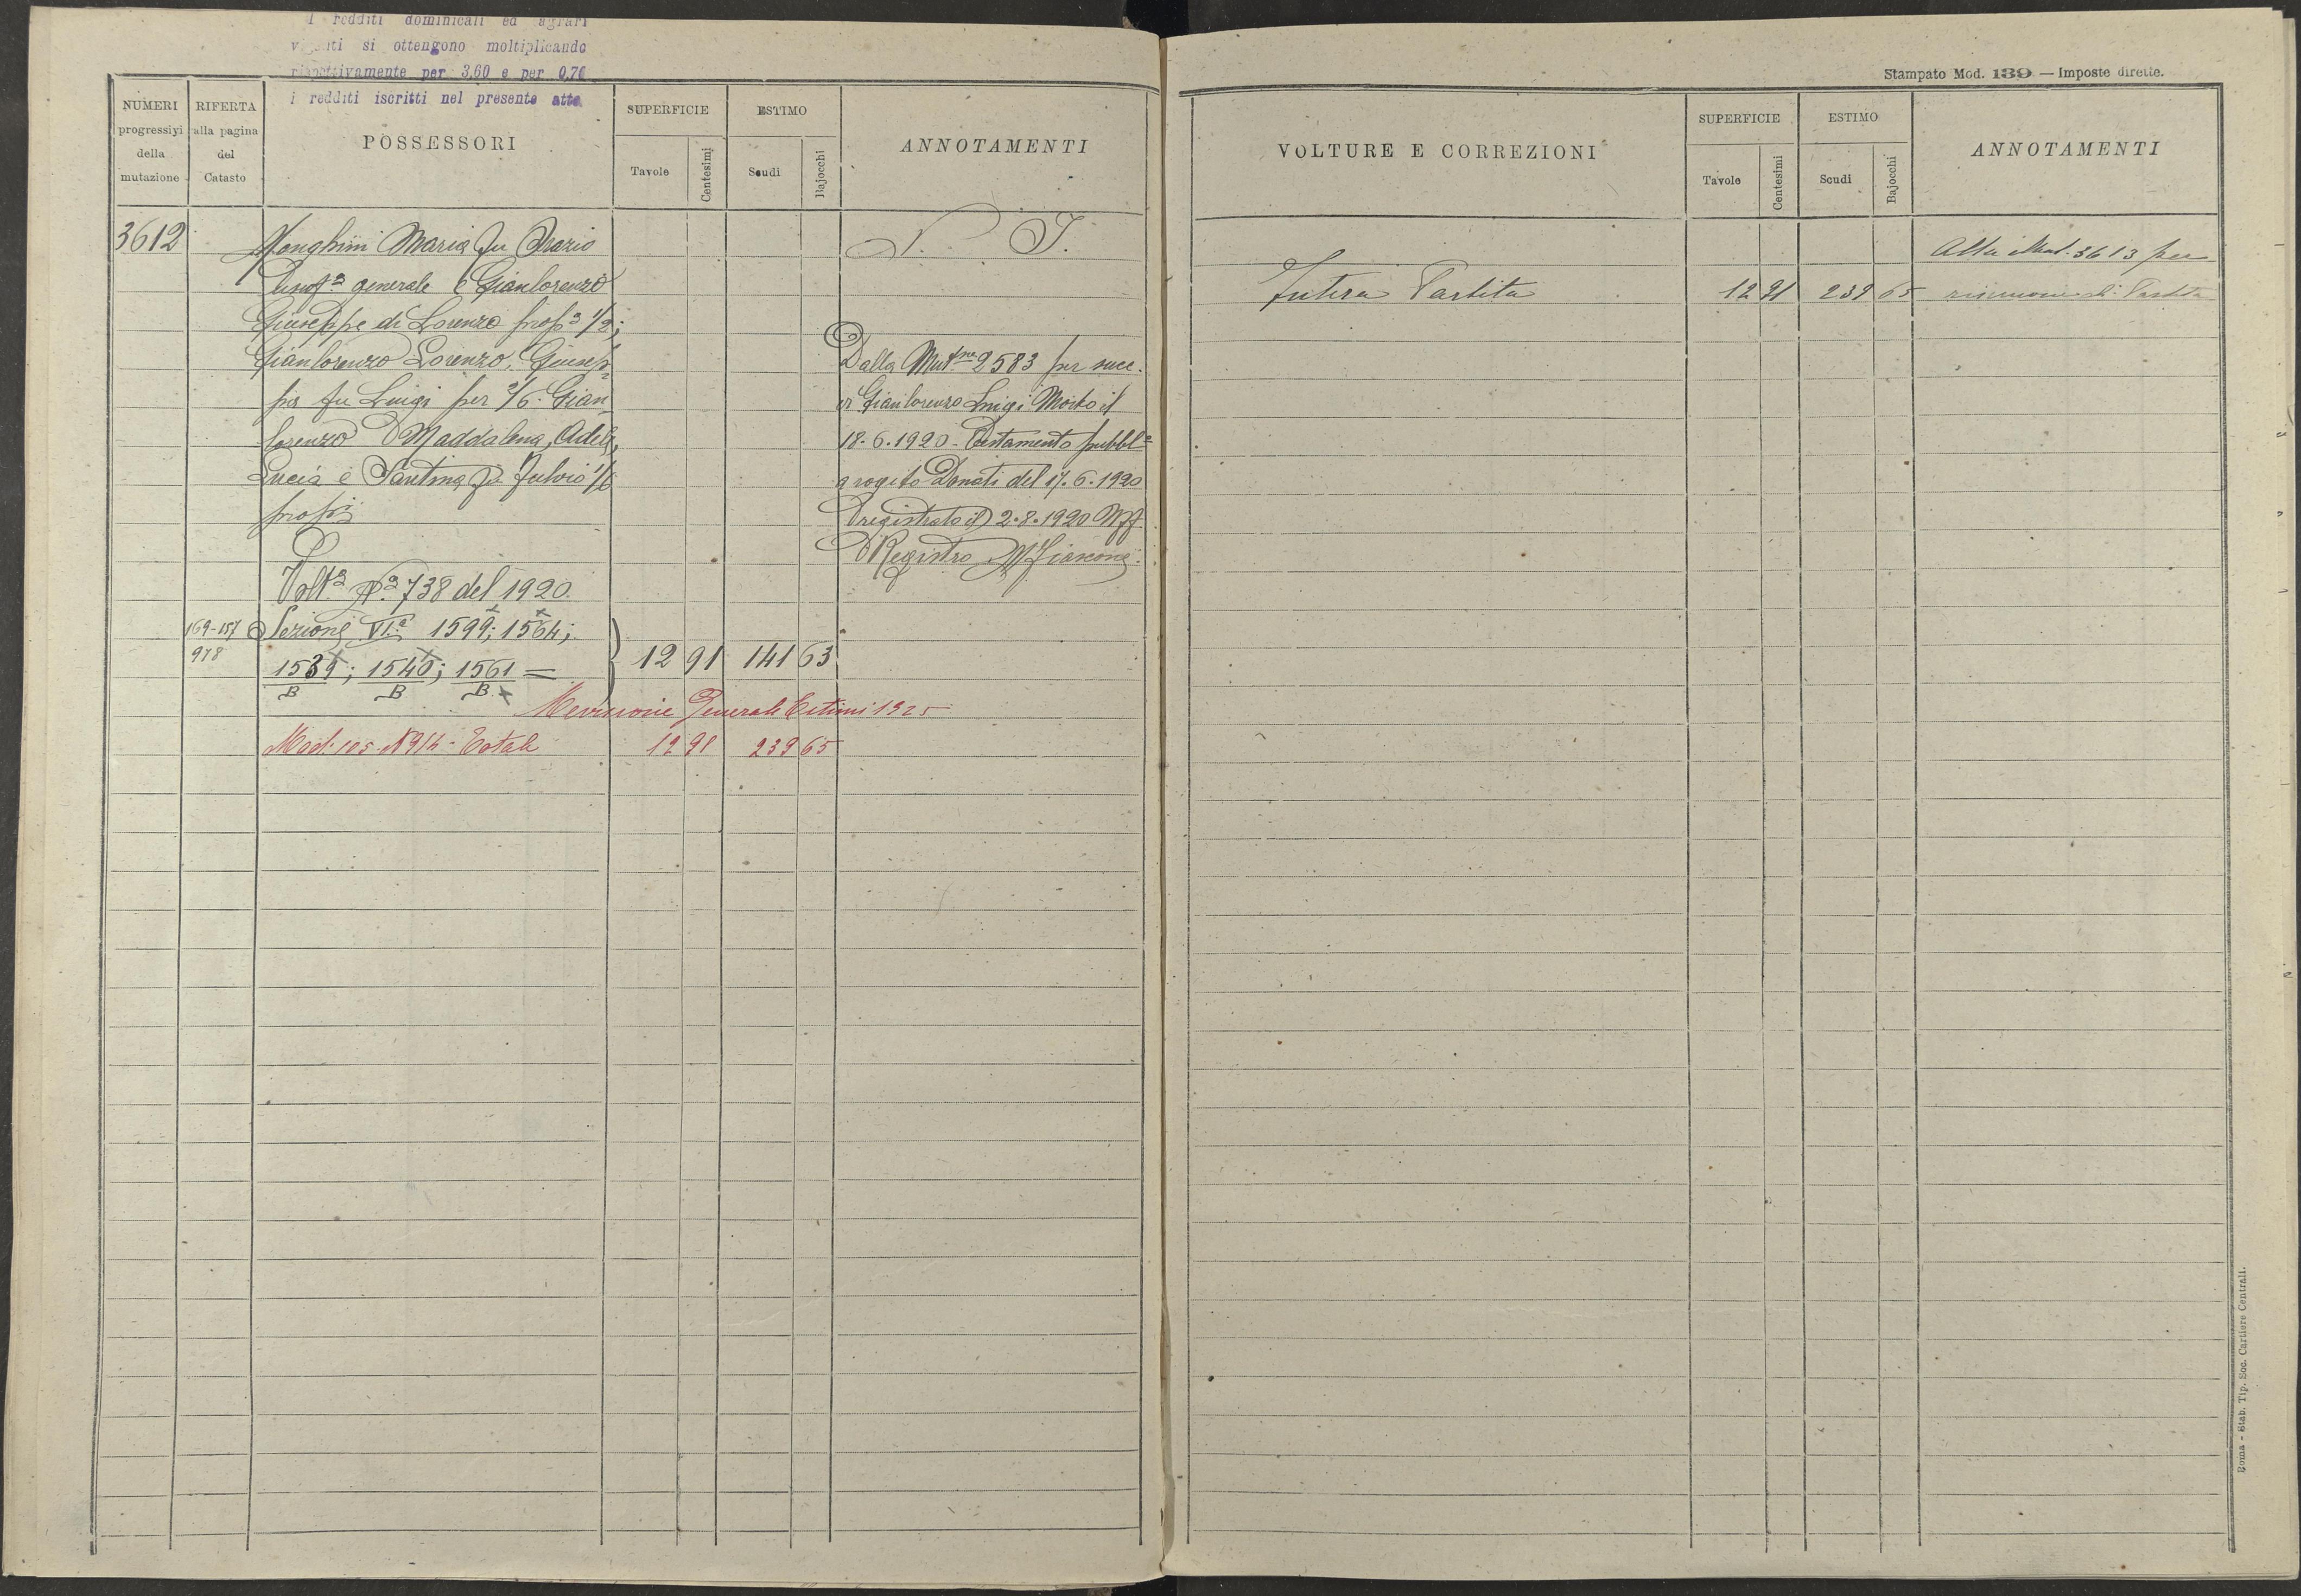 I redditi dominicali ed agrari
vigenti si ottengono moltiplicando
rispettivamente per 3,60 e per 0,70
i redditi iscritti nel presente atto
NUMERI progressivi della mutazione
RIFERTA alla pagina del Catasto
POSSESSORI
SUPERFICIE
Tavole
Centesimi
ESTIMO
Scudi
Bajocchi
ANNOTAMENTI
3612
Monghini Maria fu Orazio
Usuf.a generale e Gianlorenzo
Giuseppe di Lorenzo prop.o 1/2;
Gianlorenzo Lorenzo, Giusep=
pe fu Luigi per 2/6. Gian=
lorenzo Maddalena, Adele,
Lucia e Santina fu Fulvio 1/6
prop.i
N. I.
Dalla Mut.ne 2583 per succ.
di Gianlorenzo Luigi Morto il
18.6.1920 - Testamento pubbl.o
a rogito Donati del 17.6.1920
registrato il 2.8.1920 Uff.
Registro
Volt.a N.o 738 del 1920.
169-157 Sezione VI.a 1599; 1564;
978
1539/B; 1540/B; 1561/B = 12 91 141 63
Revisione Generale Estimi 1925
Mod. 105 - N 914 - Totale 12 91 239 65
Stampato Mod. 139 — Imposte dirette.
VOLTURE E CORREZIONI
SUPERFICIE
Tavole
Centesimi
ESTIMO
Scudi
Bajocchi
ANNOTAMENTI
Alla Mut. 3613 per
Intera Partita 12 91 239 65 riunione di Partita
Roma - Stab. Tip. Soc. Cartiere Centrali.